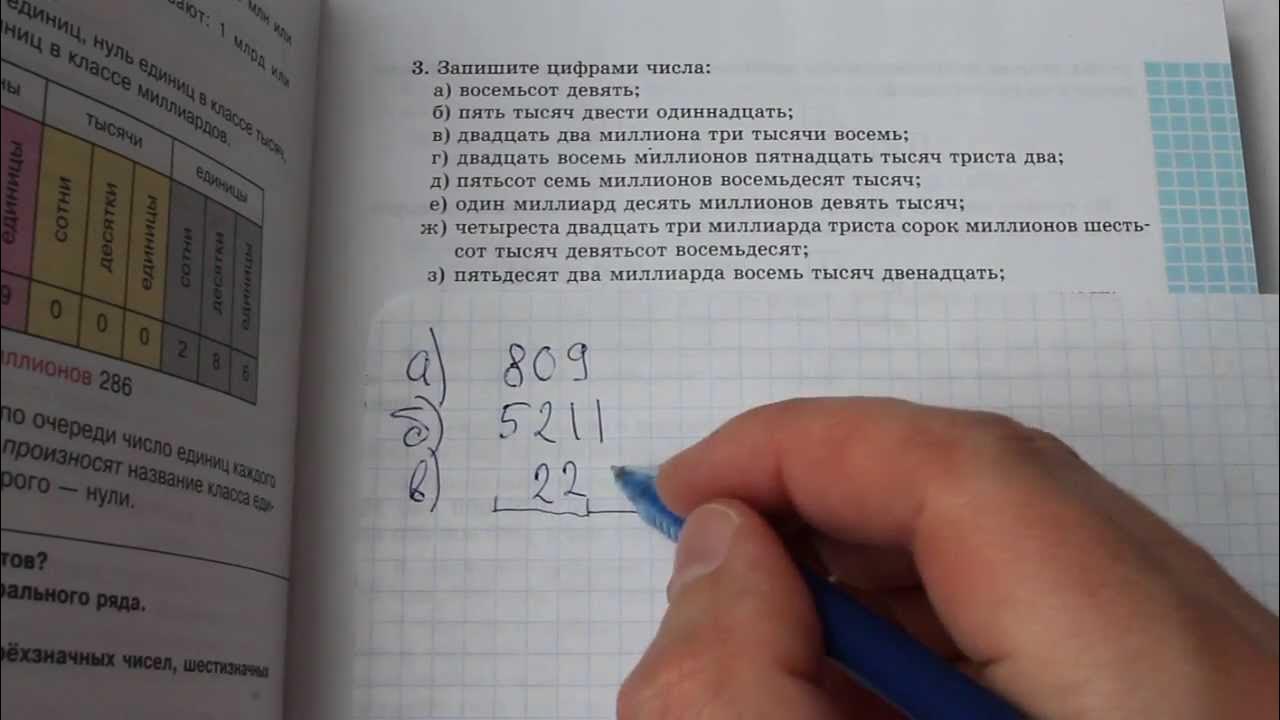 млн или
ают: 1 млрд или
единиц, нуль единиц в классе тысяч,
ниц в классе миллиардов.
ны
тысячи
единицы
единицы
сотни
десятки
единицы
сотни
десятки
единицы
9 0 0 0 2 8 6
иллионов 286
по очереди число единиц каждого
произносят название класса еди-
рого — нули.
тов?
рального ряда.
рёхзначных чисел, шестизначных
3. Запишите цифрами числа:
а) восемьсот девять;
б) пять тысяч двести одиннадцать;
в) двадцать два миллиона три тысячи восемь;
г) двадцать восемь миллионов пятнадцать тысяч триста два;
д) пятьсот семь миллионов восемьдесят тысяч;
е) один миллиард десять миллионов девять тысяч;
ж) четыреста двадцать три миллиарда триста сорок миллионов шесть-
сот тысяч девятьсот восемьдесят;
з) пятьдесят два миллиарда восемь тысяч двенадцать;
а) 809
б) 5211
в) 22